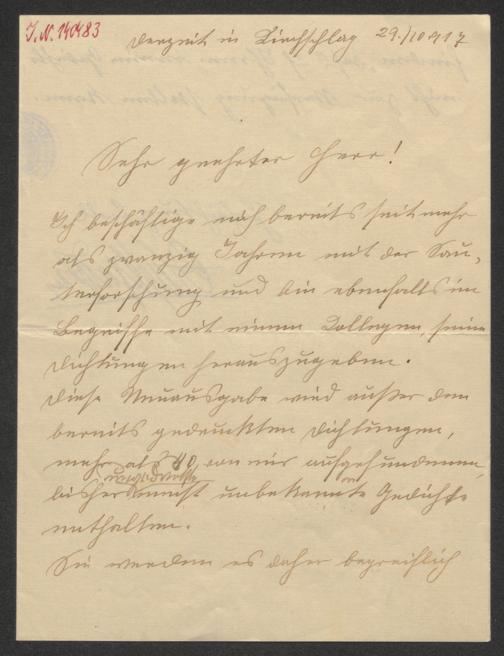 J.N. 140483
derzeit in Kirchschlag 29./10 917
Sehr geehrter Herr!
Ich beschäftige mich bereits seit mehr
als zwanzig Jahren mit der Sau-
terforschung und bin ebenfalls im
Begriffe mit einem Kollegen, seine
Dichtungen herauszugeben.
Diese Neuausgabe wird außer den
bereits gedruckten Dichtungen,
mehr als 80, von mir aufgefundenen,
bisher meist unbekannte Gedichte
enthalten.
Sie werden es daher begreiflich